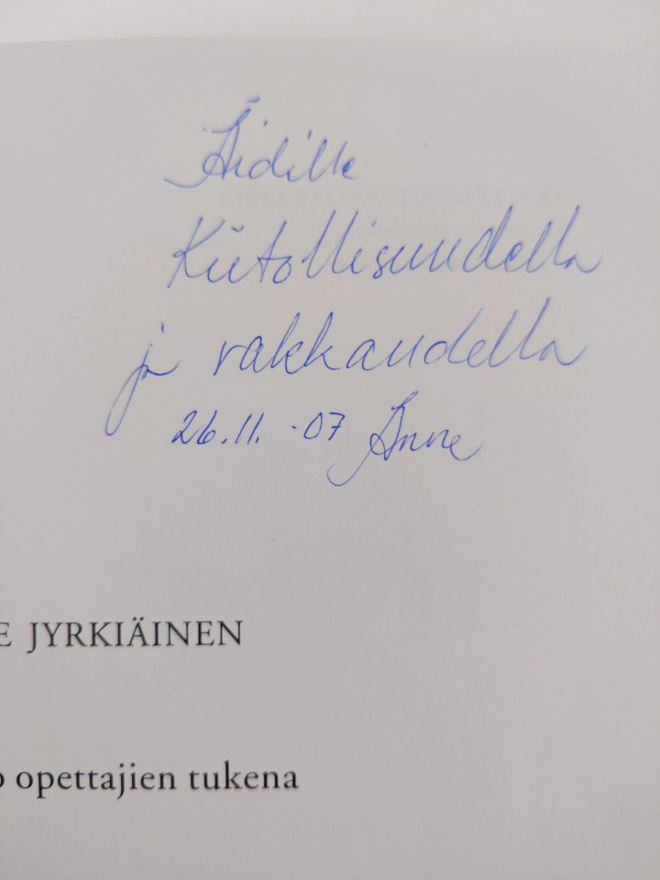 Äidille
Kiitollisuudella
ja rakkaudella
26.11.-07 Anne
E JYRKIÄINEN
o opettajien tukena